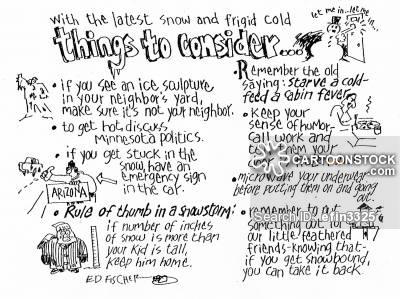 with the latest snow and frigid cold
things to consider....
let me in.. let me in...
• if you see an ice sculpture
in your neighbor's yard,
make sure it's not your neighbor.
• to get hot, discuss
Minnesota politics.
• if you get stuck in the
snow, have an
emergency sign
in the car.
ARIZONA
• Rule of thumb in a snowstorm:
if number of inches
of snow is more than
your kid is tall,
keep him home.
ED FISCHER
• Remember the old
saying: starve a cold-
feed a cabin fever
• keep your
sense of humor-
call work and
them your
• microwave your underwear
before putting them on and going
out.
• remember to put
something out for
our little feathered
friends-knowing that-
if you get snowbound,
you can take it back
CARTOONSTOCK
.com
Search ID: efin3325